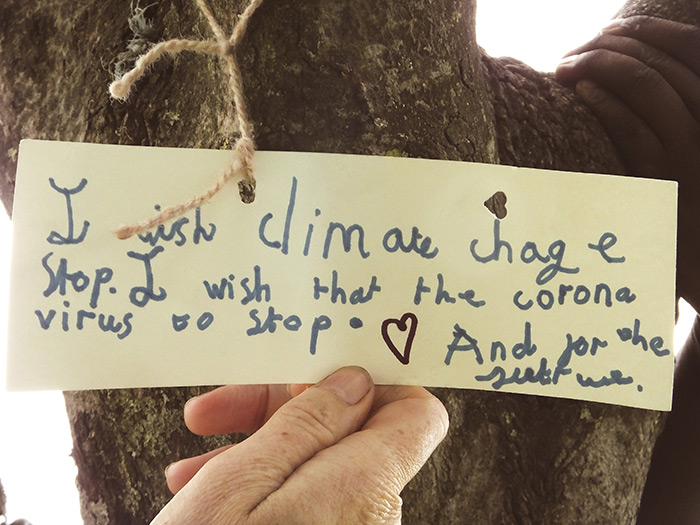 I wish climate chage
Stop. I wish that the corona
virus to stop.
And for the